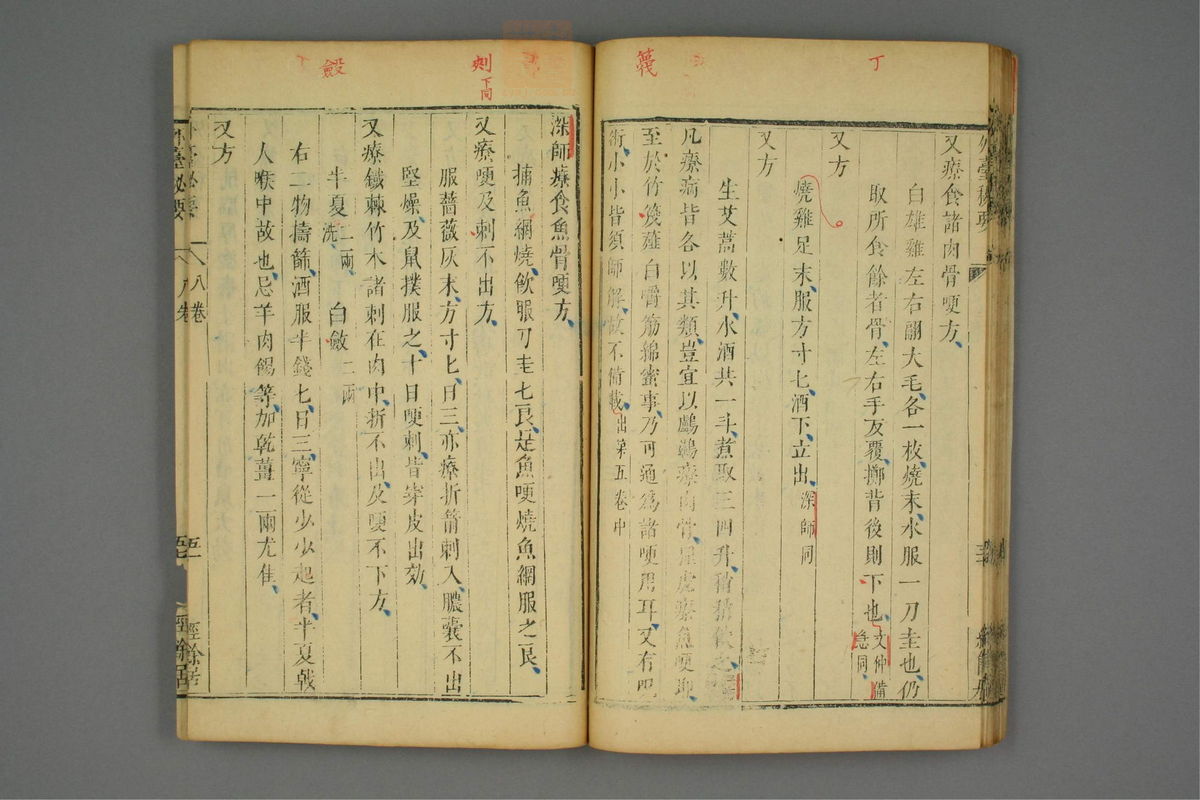 丁
篾
外臺秘要
又療食諸肉骨哽方
白雄雞左右翮大毛各一枚燒末水服一刀圭也仍
取所食餘者骨左右手反覆擲背後則下也文仲備急同
又方
燒雞足末服方寸匕酒下立出深師同
又方
生艾蒿數升水酒共一斗煮取三四升稍稍飲之
凡療病皆各以其類豈宜以鸕鷀療肉骨狸虎療魚哽耶
至於竹篾薤白嚼筋綿蜜事乃可通為諸哽用耳又有咒
術小小皆須師解故不備載出第五卷中
刺下同
蘞
深師療食魚骨哽方
捕魚網燒飲服刀圭匕良是魚哽燒魚網服之良
又療哽及刺不出方
服薔薇灰末方寸匕日三亦療折箭刺入膿囊不出
堅燥及鼠撲服之十日哽刺皆穿皮出効
又療鐵棘竹木諸刺在肉中折不出及哽不下方
半夏二兩洗 白斂二兩
右二物擣篩酒服半錢匕日三寧從少少起者半夏戟
人喉中故也忌羊肉餳等加乾薑一兩尤佳
又方
外臺秘要 八卷 經餘居